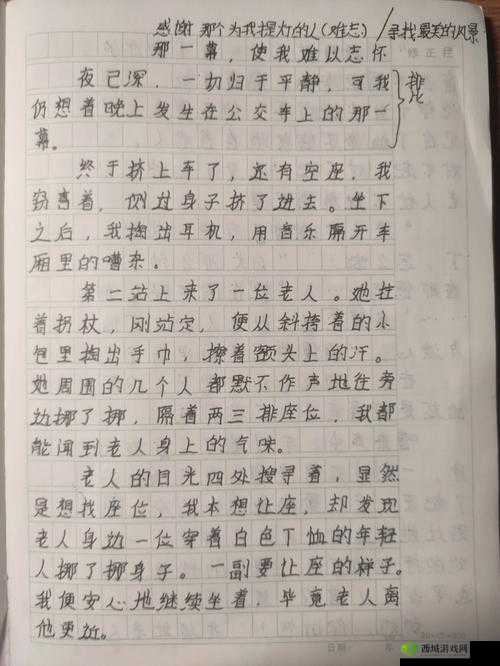 感谢那个为我提灯的人(难忘)/寻找最美的风景
那一幕,使我难以忘怀
夜已深,一切归于平静,可我
仍想着晚上发生在公交车上的那一
幕。
排比
终于挤上车了,还有空座,我
窃喜着,侧过身子挤了进去。坐下
之后,我掏出耳机,用音乐隔开车
厢里的嘈杂。
第二站上来了一位老人。她拄
着拐杖,刚站定,便从斜挎着的小
包里掏出手巾,擦着额头上的汗。
她周围的几个人都默不作声地往旁
边挪了挪,隔着两三排座位,我都
能闻到老人身上的气味。
老人的目光四处搜寻着,显然
是想找座位,我本想让座,却发现
老人身边一位穿着白色T恤的年轻
人挪了挪身子。一副要让座的样子。
我便安心地继续坐着,毕竟老人离
他更近。
日期
西城游戏网